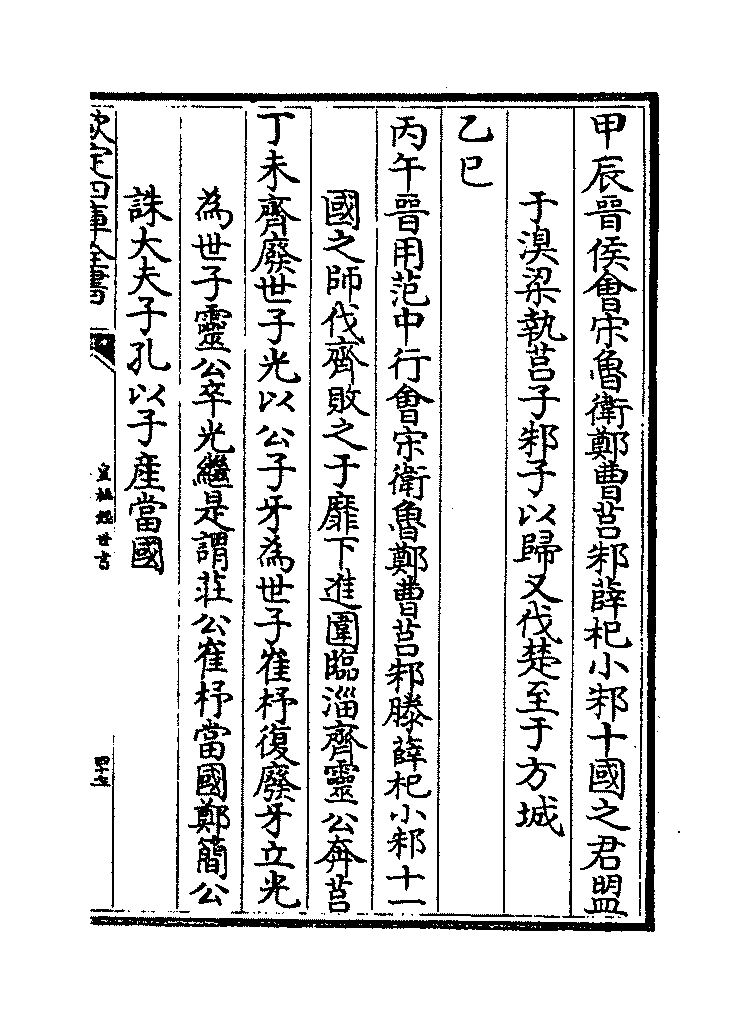 甲辰晉侯會宋魯衛鄭曹莒邾薛杞小邾十國之君盟
于湨梁執莒子邾子以歸又伐楚至于方城
乙巳
丙午晉用范中行會宋衛魯鄭曹莒邾滕薛杞小邾十一
國之師伐齊敗之于靡下進圍臨淄齊靈公奔莒
丁未齊廢世子光以公子牙為世子崔杼復廢牙立光
為世子靈公卒光繼是謂莊公崔杼當國鄭簡公
誅大夫子孔以子產當國
欽定四庫全書
皇極經世書
四十五